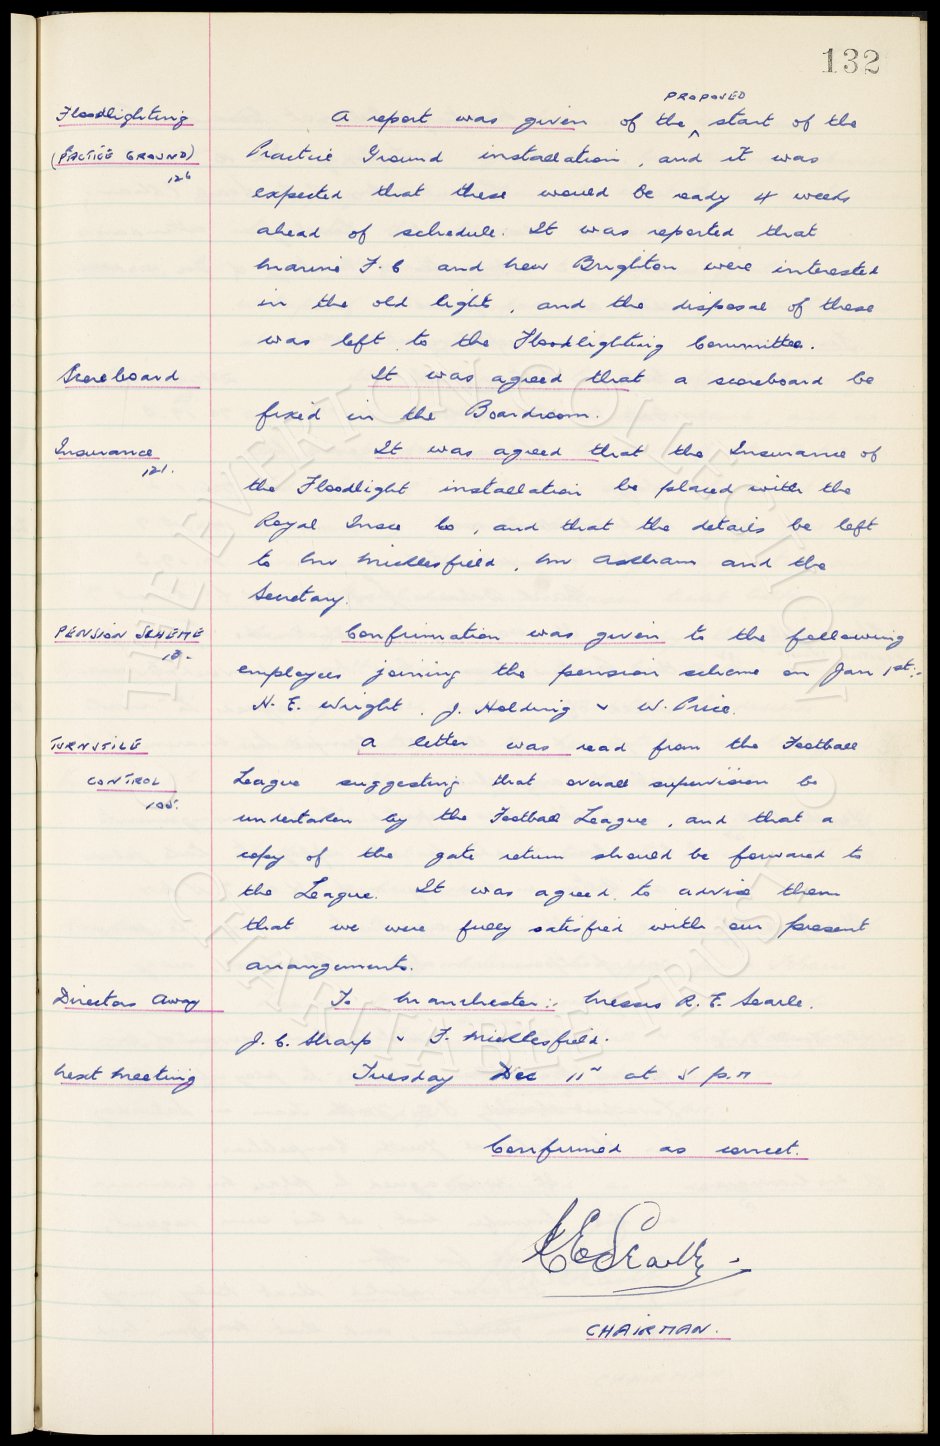 132
PROPOSED
Floodlighting A report was given of the start of the
(PRACTICE GROUND) Practice Ground installation, and it was
126
expected that these would be ready 4 weeks
ahead of schedule. It was reported that
Marine F.C and New Brighton were interested
in the old light, and the disposal of these
was left to the Floodlighting Committee.
Scoreboard It was agreed that a scoreboard be
fixed in the Boardroom.
Insurance It was agreed that the Insurance of
121.
the Floodlight installation be placed with the
Royal Insce Co, and that the details be left
to Mr Micklesfield, Mr Askham and the
Secretary.
PENSION SCHEME Confirmation was given to the following
18.
employees joining the pension scheme on Jan 1st:-
H. E. Wright, J. Holding & W. Price.
TURNSTILE A letter was read from the Football
CONTROL League suggesting that overall supervision be
100.
undertaken by the Football League, and that a
copy of the gate return should be forwared to
the League. It was agreed to advise them
that we were fully satisfied with our present
arrangements.
Directors Away To Manchester:- Messrs R. E. Searle.
J. C. Sharp & F. Micklesfield.
Next Meeting Tuesday Dec 11th at 5 p.m
Confirmed as correct.
CHAIRMAN.
THE EVERTON COLLECTION
CHARITABLE TRUST